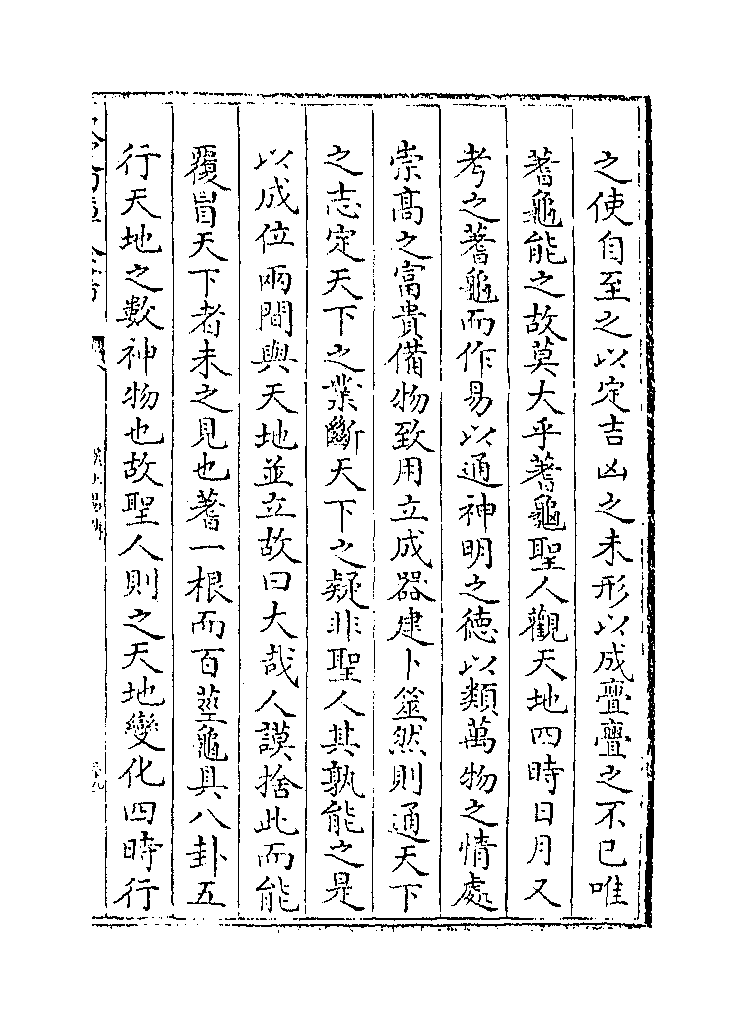 之使自至之以定吉凶之未形以成亹亹之不已唯
蓍龜能之故莫大乎蓍龜聖人觀天地四時日月又
考之蓍龜而作易以通神明之德以類萬物之情處
崇髙之富貴備物致用立成器建卜筮然則通天下
之志定天下之業斷天下之疑非聖人其孰能之是
以成位兩間與天地並立故曰大哉人謨捨此而能
覆冒天下者未之見也蓍一根而百莖龜具八卦五
行天地之數神物也故聖人則之天地變化四時行
漢上易傳
卷九